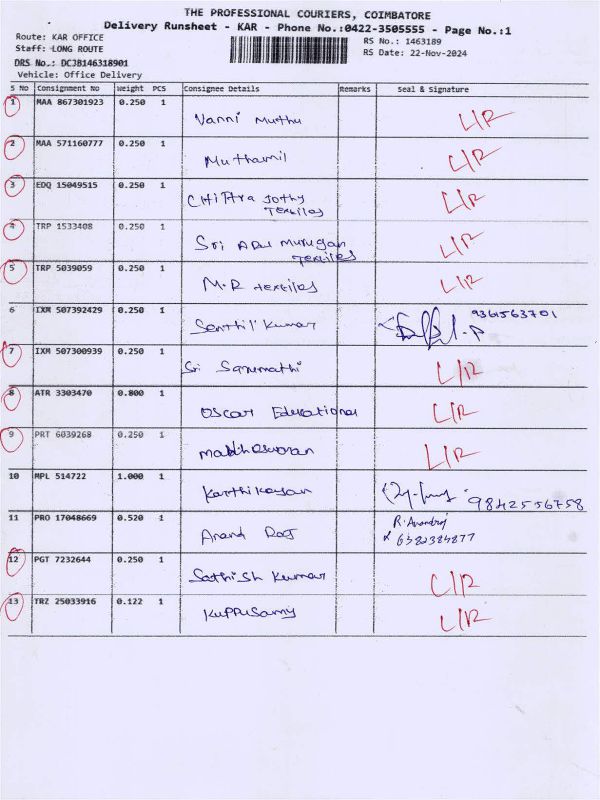 THE PROFESSIONAL COURIERS, COIMBATORE
Delivery Runsheet - KAR - Phone No.:0422-3505555 - Page No.:1
Route: KAR OFFICE
RS No.: 1463189
Staff: LONG ROUTE
RS Date: 22-Nov-2024
DRS No.: DCJB146318901
Vehicle: Office Delivery
S No Consignment No Weight PCS Consignee Details Remarks Seal & Signature
1 MAA 867301923 0.250 1
Vanni Muthu L/R
2 MAA 571160777 0.250 1
Muthamil L/R
3 EDQ 15049515 0.250 1
Chittra Jothy L/R
Textiles
4 TRP 1533408 0.250 1
Sri Arul Murugan L/R
Textiles
5 TRP 5039059 0.250 1
M.R textiles L/R
6 IXM 507392429 0.250 1
Senthil Kumar 9361563701
7 IXM 507300939 0.250 1
Sri L/R
8 ATR 3303470 0.800 1
Oscar Educational L/R
9 PRT 6039268 0.250 1
Matheswaran L/R
10 MPL 514722 1.000 1
Karthikeyan 9842556758
11 PRO 17048669 0.520 1 R. Anandraj
Anand Raj 6382384877
12 PGT 7232644 0.250 1
Sathish Kumar L/R
13 TRZ 25033916 0.122 1
Kuppusamy L/R